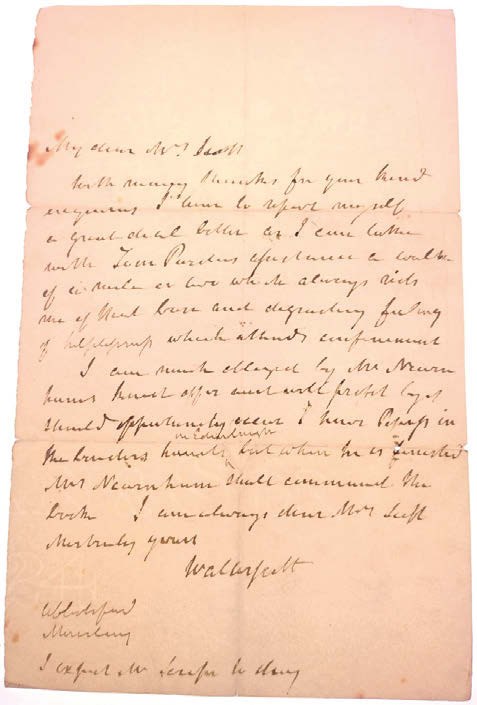 My dear Mrs. Scott
With many thanks for your kind
enquiries I have to report myself
a great deal better as I can take
with Tom Purdies assistance a walk
of a mile or two which always rids
me of that base and degrading feeling
of helplessness which attends confinement
I am much obliged by Mrs Nearn
hams kind offer and will profit by it
should opportunity occur I have Pepys in
in Edinburgh
the binders hands but when he is finished
Mrs Nearnham shall command the
book I am always dear Mrs Scott
Most truly yours
Walter Scott
Abbotsford
Monday
I expect Mr Scrope to day